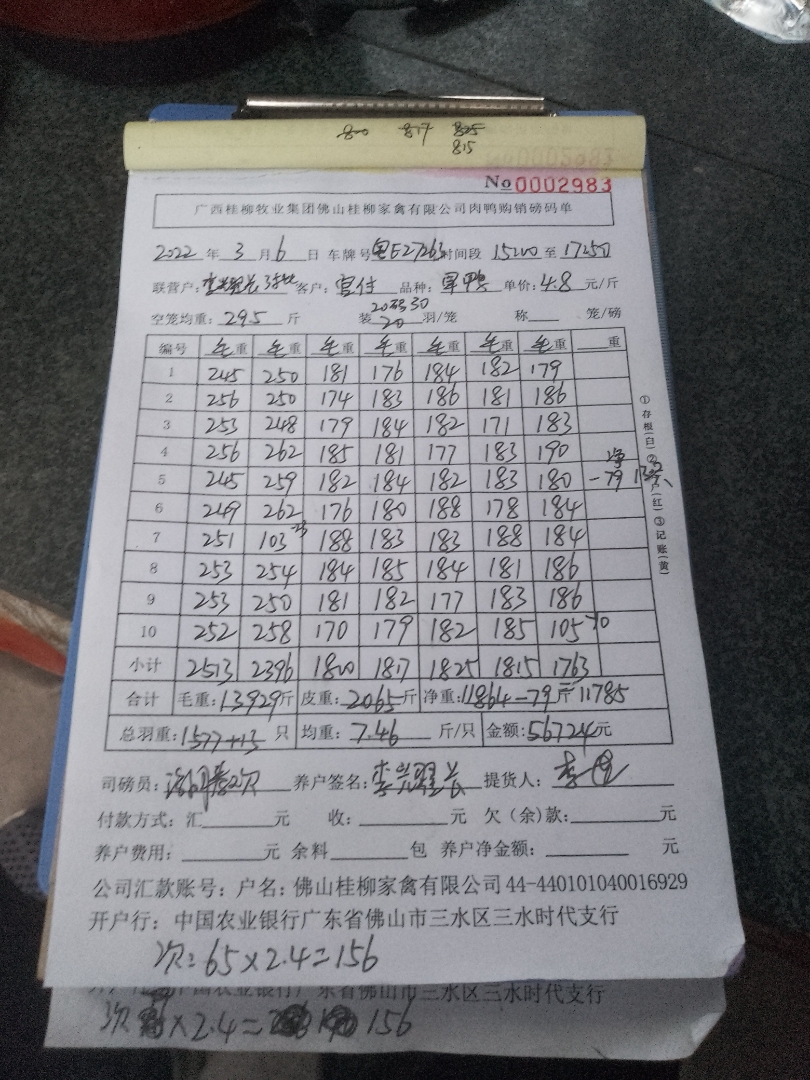 800 817 825
815
No 0002983
广西桂柳牧业集团佛山桂柳家禽有限公司肉鸭购销磅码单
2022 年 3 月 6 日 车牌号 粤E27263 时间段 15200 至 17250
联营户: 客户: 品种: 单价: 4.8 元/斤
20码30
空笼均重: 29.5 斤 装 20 羽/笼 称 笼/磅
编号 毛重 毛重 毛重 毛重 毛重 毛重 毛重 重
1 245 250 181 176 184 182 179
2 256 250 174 183 186 181 186
3 253 248 179 184 182 171 183
4 256 262 185 181 177 183 190
5 245 259 182 184 182 183 180 -79
6 249 262 176 180 188 178 184
7 251 103 188 183 183 188 184
8 253 254 184 185 184 181 186
9 253 250 181 182 177 183 186
10 252 258 170 179 182 185 105 -10
小计 2513 2396 1800 1817 1825 1815 1763
合计 毛重: 13929 斤 皮重: 2065 斤 净重: 11864-79 斤 11785
总羽重: 1577+13 只 均重: 7.46 斤/只 金额: 56724 元
①存根(白)②客户(红)③记账(黄)
司磅员: 养户签名: 提货人:
付款方式: 汇 元 收: 元 欠(余)款: 元
养户费用: 元 余料 包 养户净金额: 元
公司汇款账号: 户名: 佛山桂柳家禽有限公司 44-440101040016929
开户行: 中国农业银行广东省佛山市三水区三水时代支行
次: 65×2.4=156
中国农业银行广东省佛山市三水区三水时代支行
次 ×2.4= 156